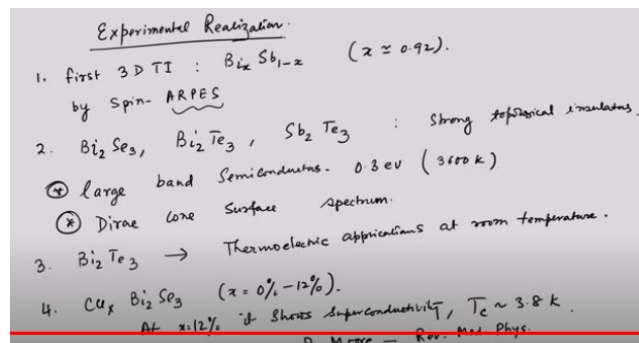 Experimental Realization.
1. first 3D TI : Biₓ Sb₁₋ₓ (x ≃ 0.92).
by Spin-ARPES
2. Bi₂ Se₃, Bi₂ Te₃, Sb₂ Te₃ : Strong topological insulators.
* large band Semiconductors. 0.3 eV (3600 K)
* Dirac cone surface spectrum.
3. Bi₂ Te₃ → Thermoelectric applications at room temperature.
4. Cuₓ Bi₂ Se₃ (x = 0% - 12%).
At x=12% it shows superconductivity, Tc ~ 3.8 K.
Moore — Rev. Mod. Phys.